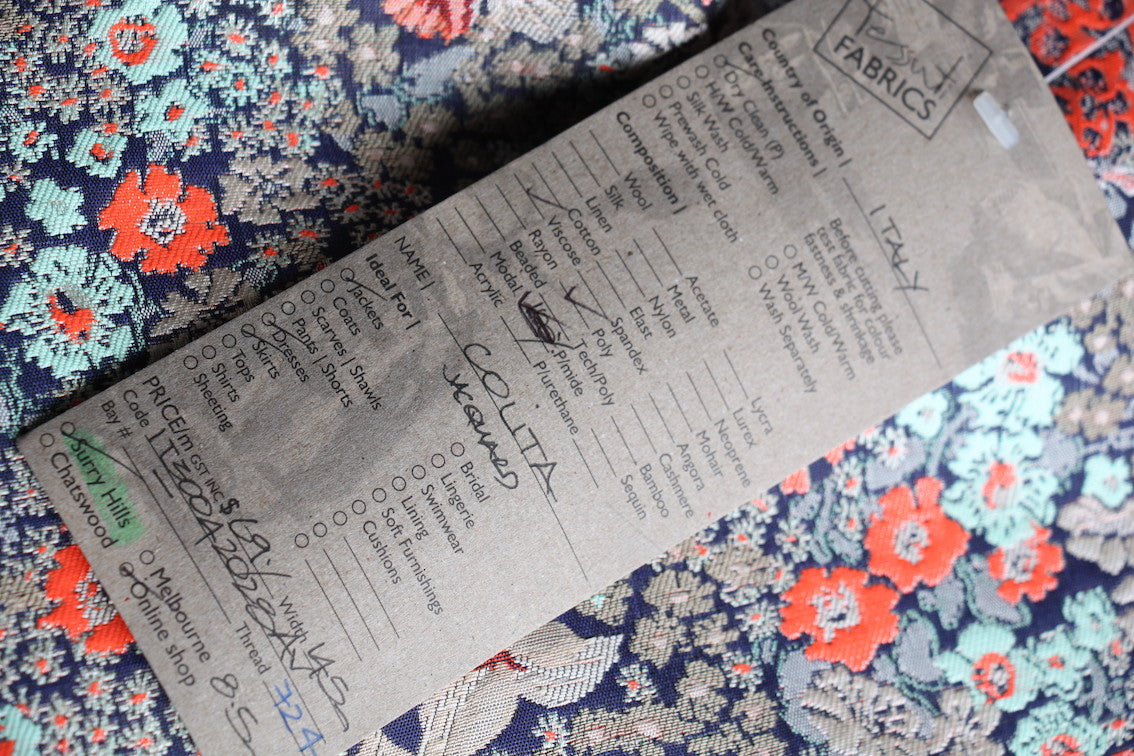 Tessuti
FABRICS
Country of Origin | ITALY
Care Instructions |
Before cutting please
test fabric for colour
fastness & shrinkage
Dry Clean (P)
H/W Cold/Warm
Silk Wash
Prewash Cold
Wipe with wet cloth
M/W Cold/Warm
Wool Wash
Wash Separately
Composition |
Wool
Silk
Linen
Cotton
Viscose
Rayon
Beaded
Modal
Acrylic
Acetate
Metal
Nylon
Elast
Spandex
Poly
Tech/Poly
P/mide
Plurethane
Lycra
Lurex
Neoprene
Mohair
Angora
Cashmere
Bamboo
Sequin
NAME | COLITA
Jacquard
Ideal For |
Jackets
Coats
Scarves | Shawls
Pants | Shorts
Dresses
Skirts
Tops
Shirts
Sheeting
Bridal
Lingerie
Swimwear
Lining
Soft Furnishings
Cushions
PRICE/m GST INC $ 69./ Width 145
Code
Thread 724
Bay #
Surry Hills
Chatswood
Melbourne
Online shop
8.5